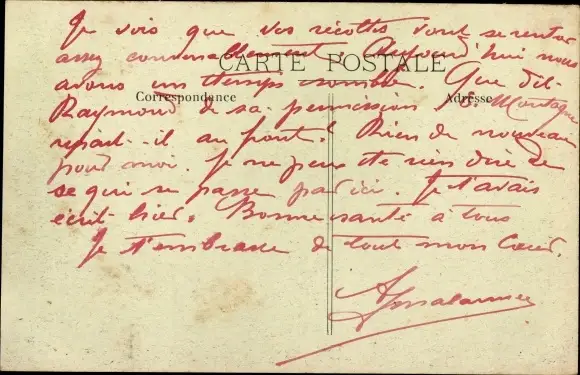 Je vois que vos récoltes vont se rentrer
assez convenablement. Aujourd'hui nous
CARTE POSTALE
avons un temps sombre. Que dit-
Correspondance
Adresse
Raymond de sa permission
repart-il au front! Rien de nouveau
pour moi. Je ne peux te rien dire de
ce qui se passe par ici. Je t'avais
écrit hier. Bonne santé à tous
Je t'embrasse de tout mon cœur.